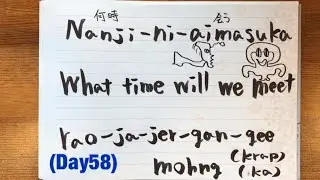 何時 会う
Nanji-ni-aimasuka
What time will we meet
rao-ja-jer-gan-gee
mohng (krap)
(Day58) (ka)